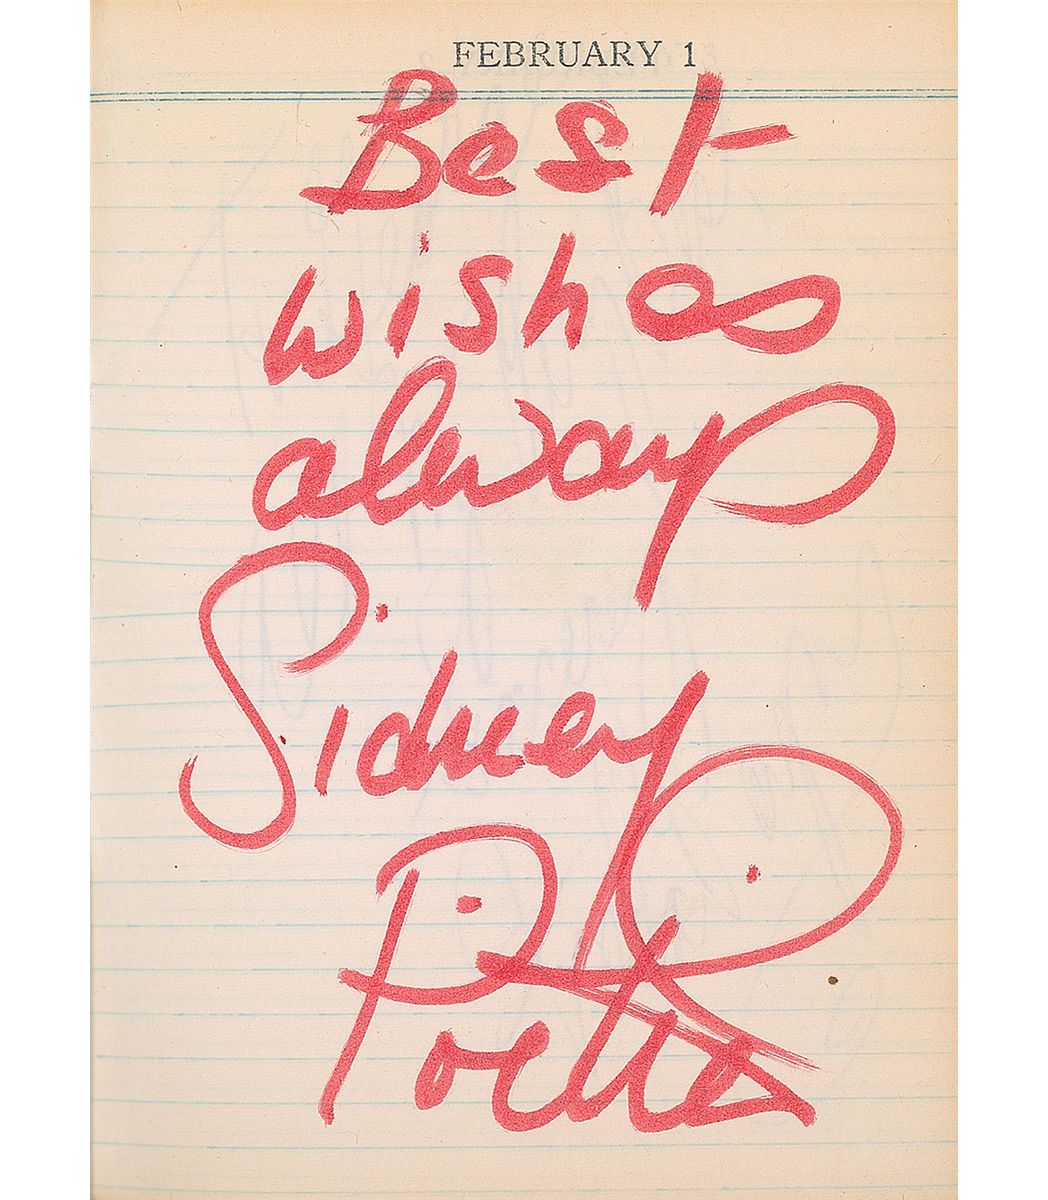 FEBRUARY 1
Best
wishes
always
Sidney
Poitier